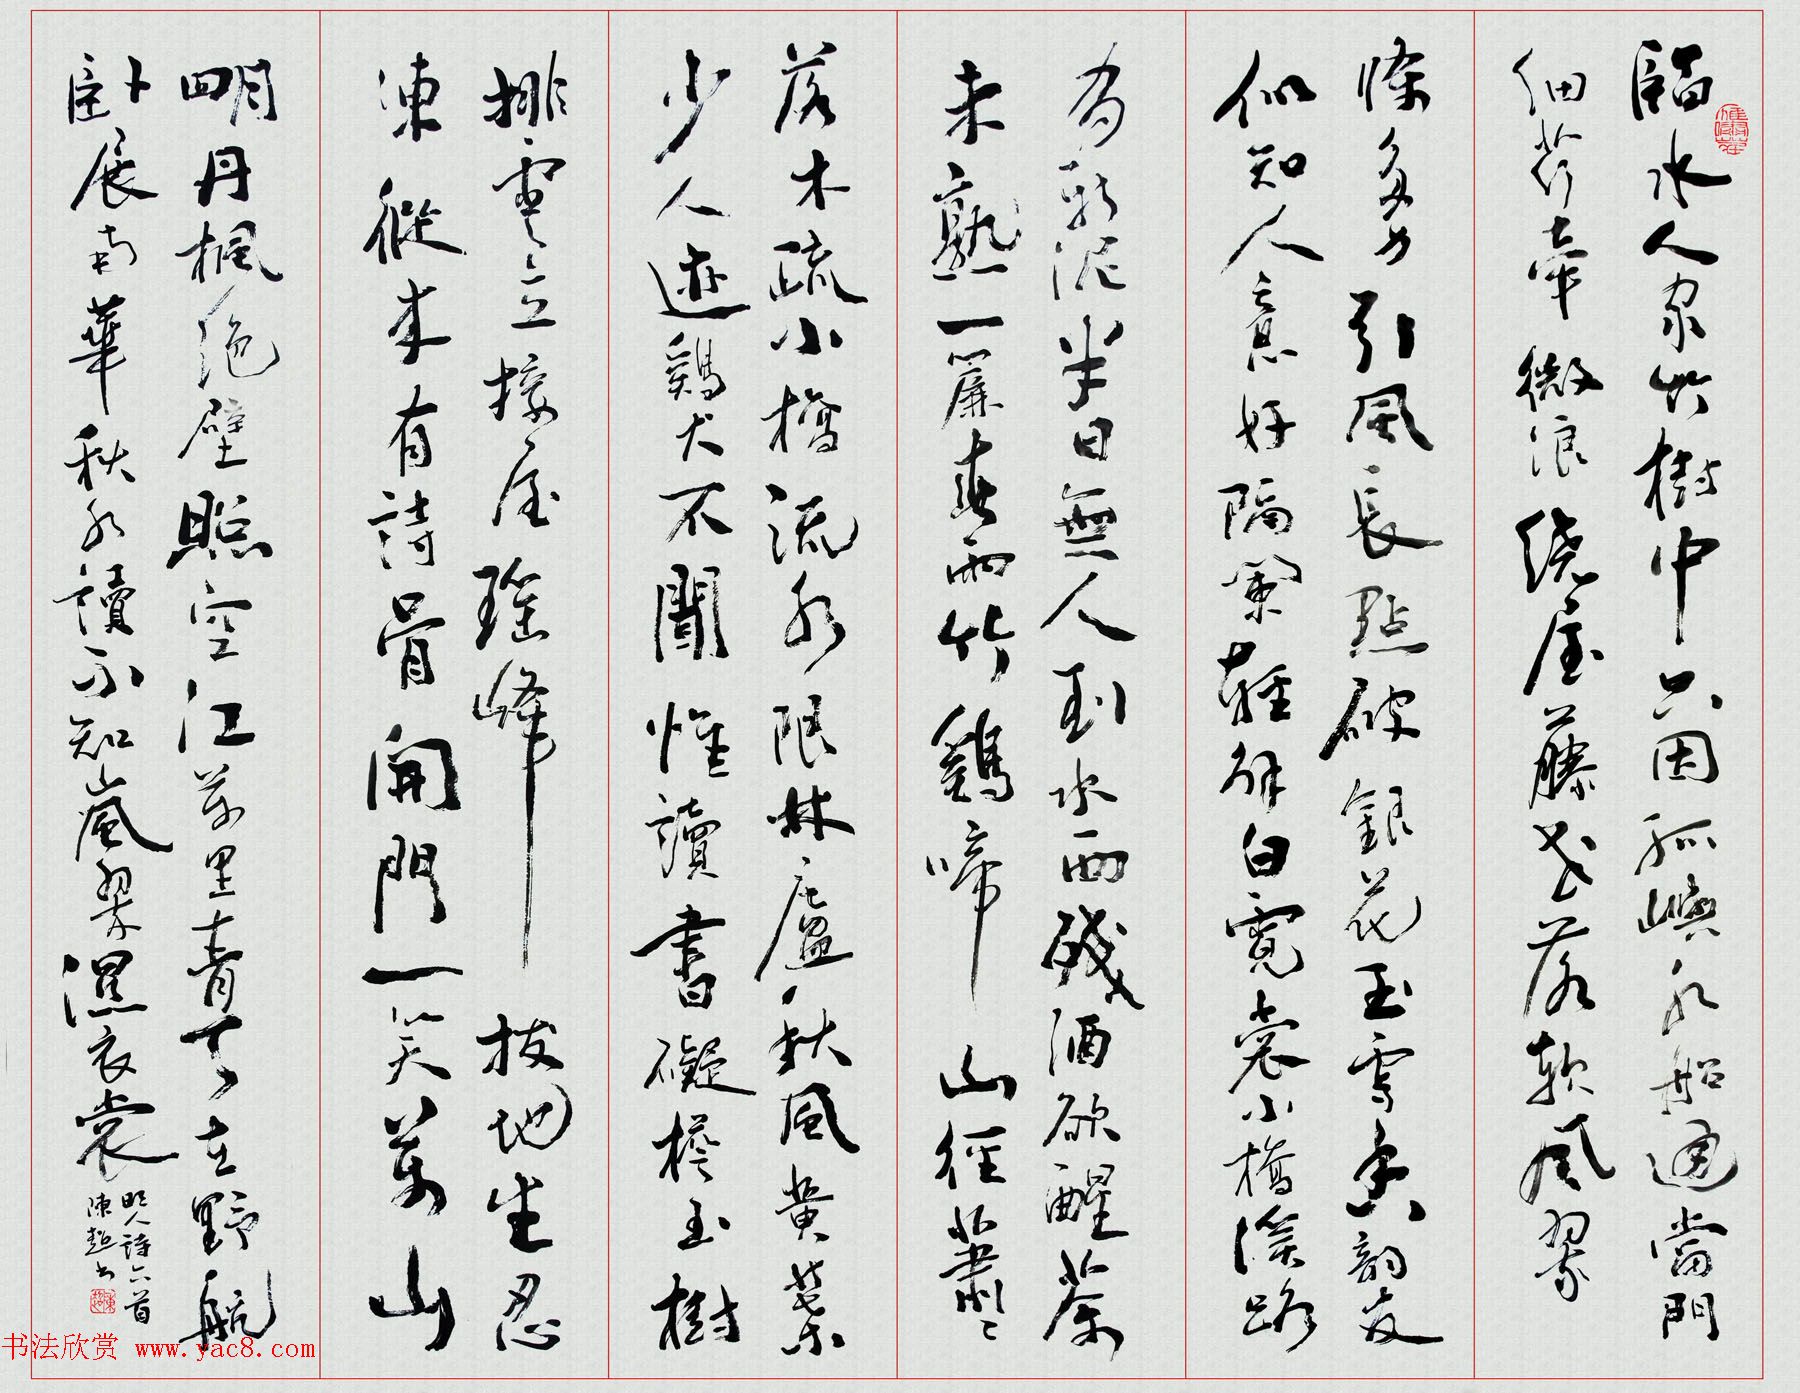 臨水人家竹樹中只因孤嶼水船通當門
細荇牽微浪繞屋藤花落軟風翠
條多力引風長點破銀花玉雪香韵友
似知人意好隔闌輕解白霓裳小橋溪路
有新泥半日無人到水西殘酒欲醒茶
未熟一簾春雨竹鷄啼山徑蕭〻
落木疏小橋流水限林廬秋風黃葉
少人迹鷄犬不聞惟讀書礙檐玉樹
排雲立接屋瑤峰拔地生忍
凍從來有詩骨開門一笑萬山
明丹楓絕壁照空江萬里青天在野航
卧展南華秋水讀不知嵐翠濕衣裳
明人詩六首
陳超書
书法欣赏 www.yac8.com